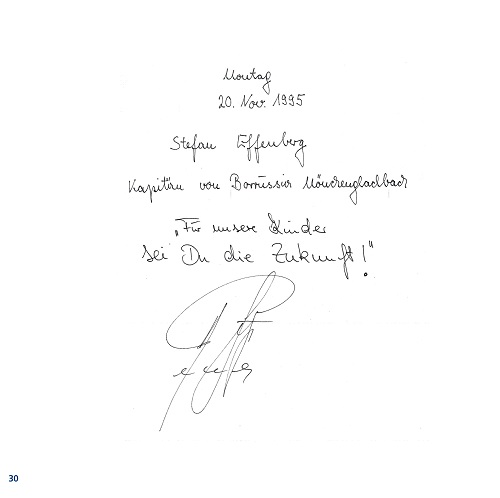 Montag
20. Nov. 1995
Stefan Effenberg
Kapitän von Borussia Mönchengladbach
„Für unsere Kinder
sei Du die Zukunft!"
30